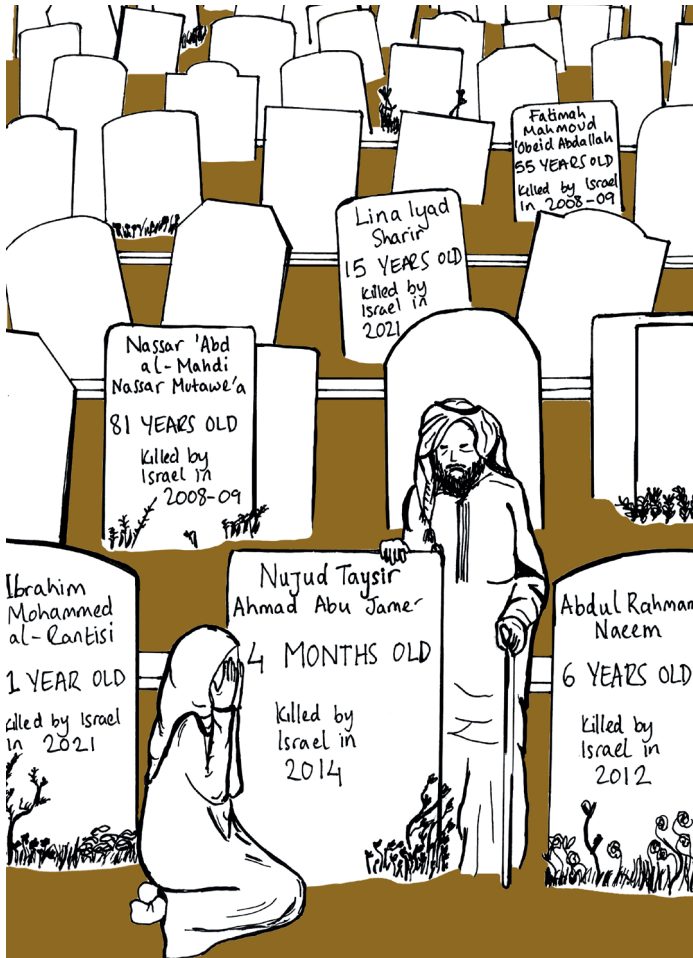 Fatimah
Mahmoud
'Obeid Abdallah
55 YEARS OLD
Killed by Israel
in 2008-09
Lina Iyad
Sharir
15 YEARS OLD
Killed by
Israel in
2021
Nassar 'Abd
al-Mahdi
Nassar Mutawe'a
81 YEARS OLD
Killed by
Israel in
2008-09
Ibrahim
Mohammed
al-Rantisi
1 YEAR OLD
Killed by Israel
in 2021
Nujud Taysir
Ahmad Abu Jame'
4 MONTHS OLD
Killed by
Israel in
2014
Abdul Rahman
Naeem
6 YEARS OLD
Killed by
Israel in
2012